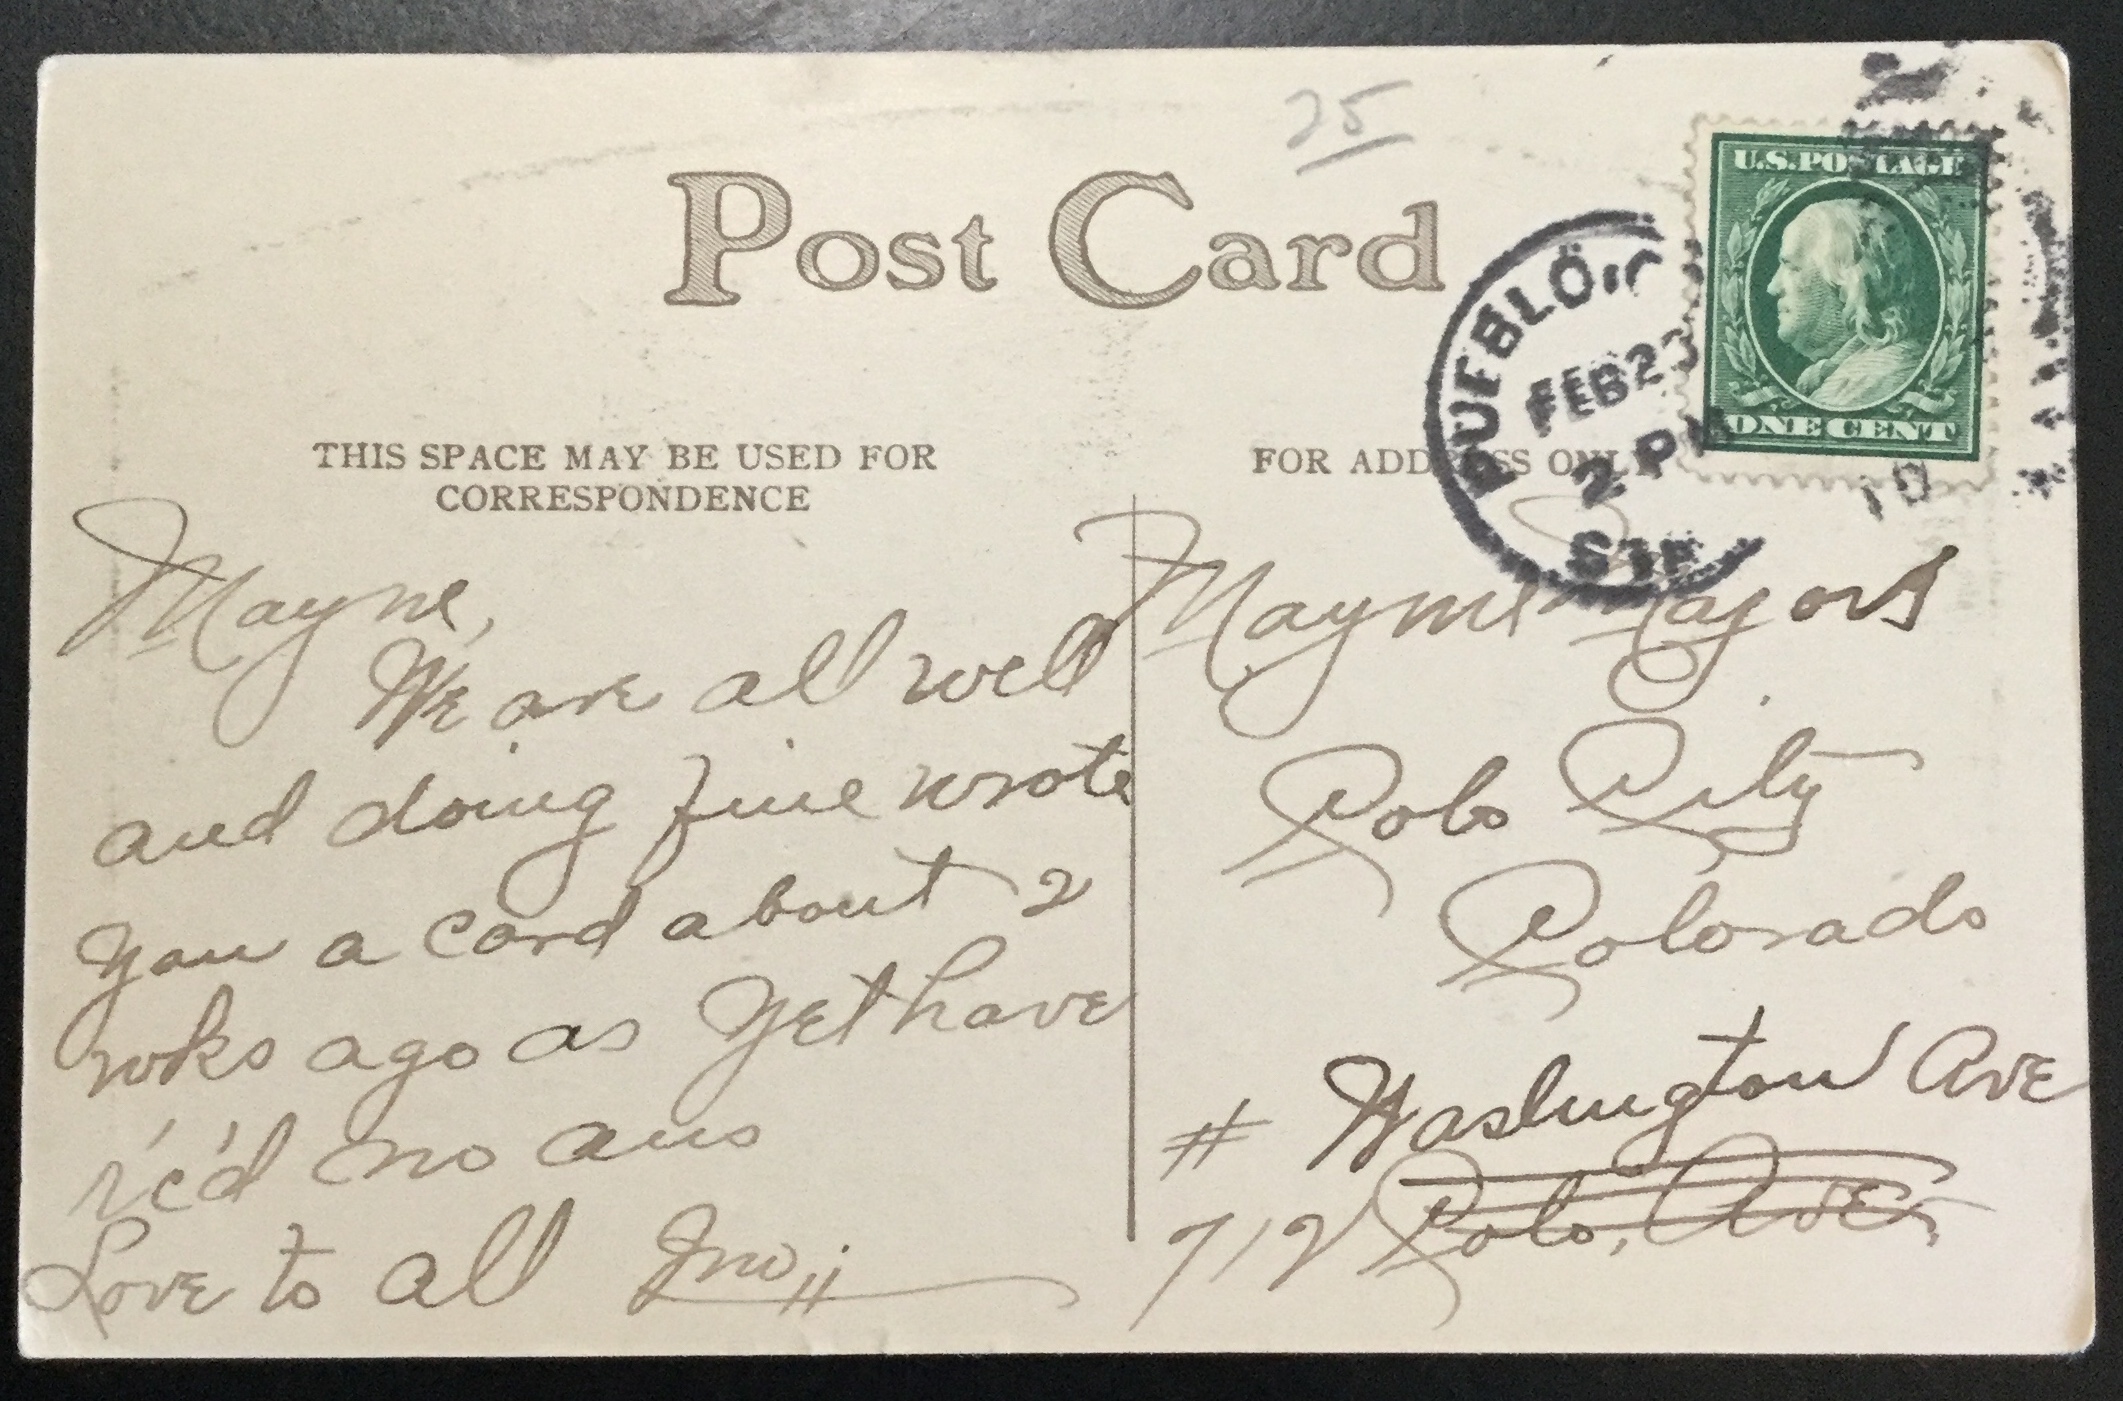 25
Post Card
U.S.POSTAGE
ONE CENT
PUEBLO,
FEB 23
2 PM
10
THIS SPACE MAY BE USED FOR
CORRESPONDENCE
FOR ADDRESS ONLY
Mayme,
We are all well
and doing fine wrote
you a card about 2
wks ago as Yet have
r'c'd no ans
Love to all Jno,,
Mayme Majors
Colo City
Colorado
# Washington Ave
712 Colo, Ave,